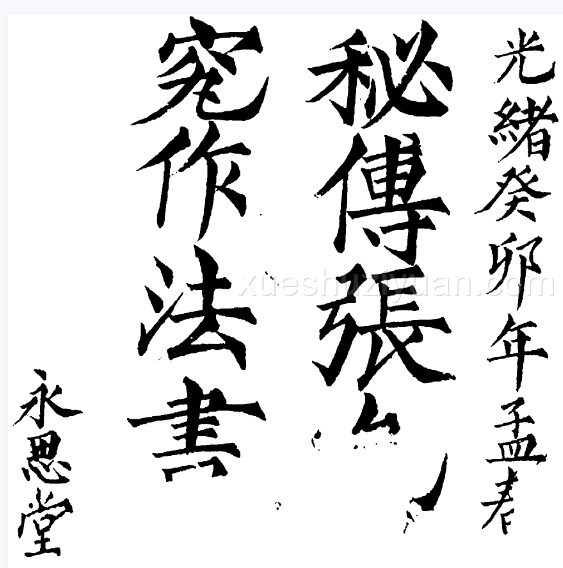 光緒癸卯年孟春
秘傳張
作法書
永思堂
xueshuziyuan.com